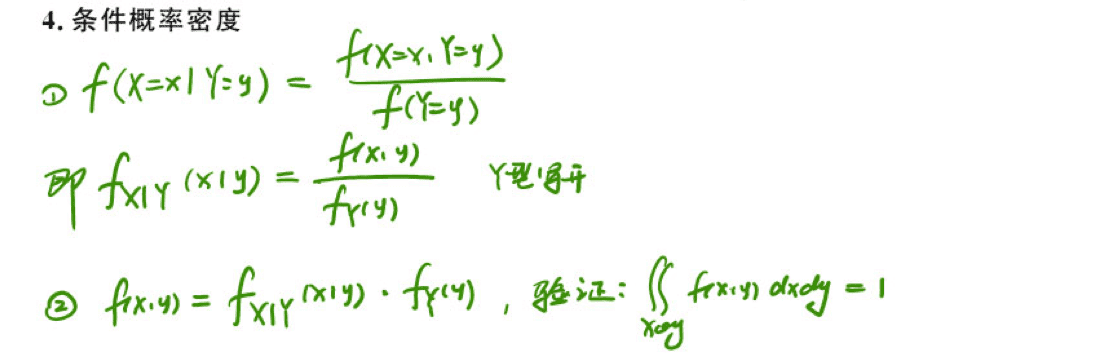 4. 条件概率密度
① f(X=x|Y=y) = f(X=x, Y=y) / f(Y=y)
即 f_{X|Y}(x|y) = f(x, y) / f_Y(y) Y型
② f(x,y) = f_{X|Y}(x|y) · f_Y(y) , 验证: ∬ f(x,y) dxdy = 1